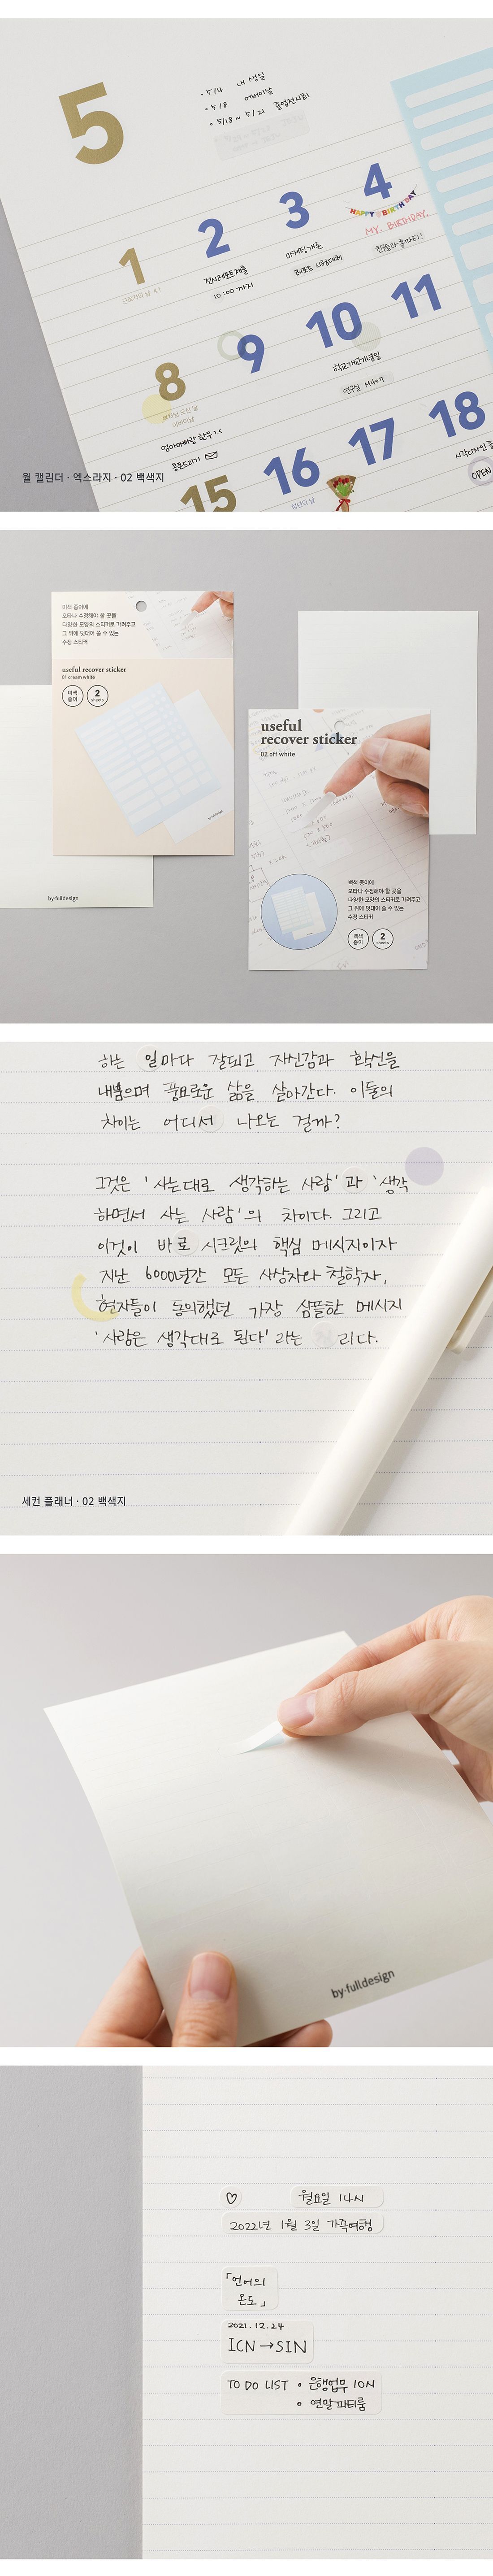 5
• 5/4 내 생일
• 5/8 어버이날
• 5/18 ~ 5/21 졸업전시회
1
근로자의 날 4.1
2
전시레포트제출
10:00 까지
3
마케팅개론
4
HAPPY BIRTHDAY
MY. BIRTHDAY.
친구들과 홈파티!!
8
부처님 오신 날
어버이날
엄마아빠랑 한우
용돈드리기
9
10
학교개교기념일
11
15
16
성년의 날
17
18
시각디자인
OPEN
월 캘린더 · 엑스라지 · 02 백색지
미색 종이에
오타나 수정해야 할 곳을
다양한 모양의 스티커로 가려주고
그 위에 덧대어 쓸 수 있는
수정 스티커
useful recover sticker
01 cream white
미색
종이
2
sheets
by·fulldesign
by·fulldesign
useful
recover sticker
02 off white
백색 종이에
오타나 수정해야 할 곳을
다양한 모양의 스티커로 가려주고
그 위에 덧대어 쓸 수 있는
수정 스티커
백색
종이
2
sheets
하는 일마다 잘되고 자신감과 확신을
내뿜으며 풍요로운 삶을 살아간다. 이들의
차이는 어디서 나오는 걸까?
그것은 '사는대로 생각하는 사람'과 '생각
하면서 사는 사람'의 차이다. 그리고
이것이 바로 시크릿의 핵심 메시지이자
지난 6000년간 모든 사상가와 철학자,
현자들이 동의했던 가장 심플한 메시지
'사람은 생각대로 된다' 라는 리다.
세컨 플래너 · 02 백색지
by·fulldesign
♡ 월요일 14시
2022년 1월 3일 가족여행
「언어의
온도」
2021.12.24
ICN → SIN
TO DO LIST • 은행업무 10시
• 연말파티룸